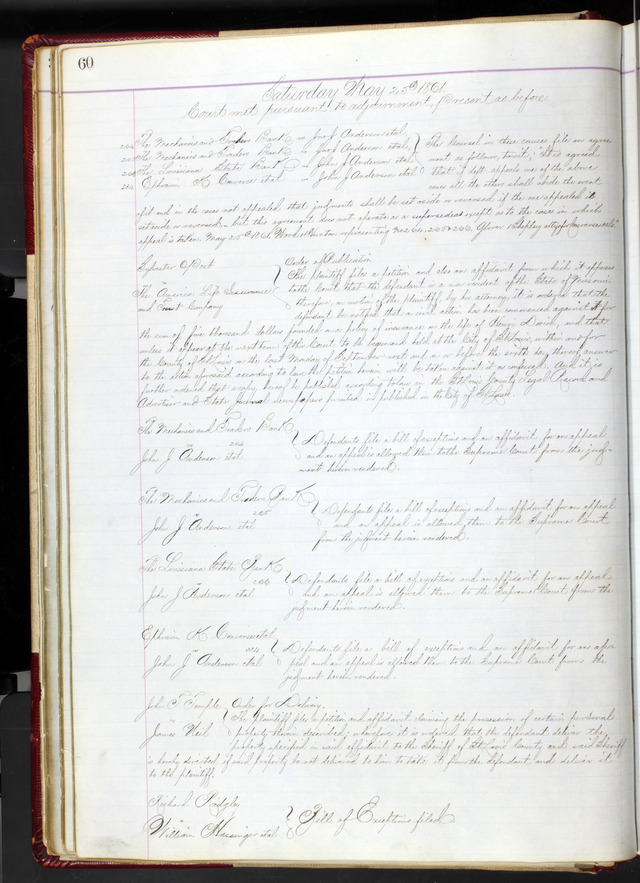 60
Saturday May 25th 1861
Court met pursuant to adjournment, present as before
The Mechanics and Traders Bank vs John J Anderson etal,
The Mechanics and Traders Bank vs John J Anderson etal,
The Louisiana State Bank vs John J Anderson etal
Ephraim K Converse etal vs John J Anderson etal
The Counsel in these causes file an agree
ment as follows, towit, "It is agreed
that if deft appeals one of the above
cases all the others shall abide the event
of it and in the cases not appealed that judgments shall be set aside or reversed, if the one appealed is
set aside or reversed, but this agreement does not operate as a supersedeas except as to the case in which
appeal is taken. May 25th 1861
Sylvester
vs
The American Life Insurance
and Trust Company
Order of Publication
The plaintiff files a petition and also an affidavit from which it appears
to the Court that the defendant is a non resident of the State of Missouri.
therefore, on motion of the plaintiff by his attorney, it is ordered that the
defendant be notified that a civil action has been commenced against it for
the sum of five thousand dollars founded on a policy of insurance on the life of and that
unless it appear at the next term of this Court to be begun and held at the City of St Louis within and for
the County of St Louis on the Monday of September next and on or before the sixth day thereof answer
to the action aforesaid according to law the petition herein will be taken against it as confessed. And it is
further ordered that a copy hereof be published according to law in the St Louis County Legal Record and
Advertiser and State Journal newspapers printed & published in the City of St Louis.
The Mechanics and Traders Bank
vs
John J Anderson etal
Defendants file a bill of exceptions and an affidavit for an appeal
and an appeal is allowed them to the Supreme Court from the judg-
ment herein rendered.
The Mechanics and Traders Bank
vs 265
John J Anderson etal
Defendants file a bill of exceptions and an affidavit for an appeal
and an appeal is allowed them to the Supreme Court
from the judgment herein rendered.
The Louisiana State Bank
vs
John J Anderson etal
Defendants file a bill of exceptions and an affidavit for an appeal
and an appeal is allowed them to the Supreme Court from the
judgment herein rendered.
Ephraim K Converse etal
vs
John J Anderson etal
Defendants file a bill of exceptions and an affidavit for an ap-
peal and an appeal is allowed them to the Supreme Court from the
judgment herein rendered.
John T Temple
vs
James Weil
Order for Delivery.
The Plaintiff files a petition and affidavit claiming the possession of certain personal
property therein described; wherefore it is ordered that the defendant deliver the
property specified in said affidavit to the Sheriff of St Louis County and said Sheriff
is hereby directed if said property be not delivered to him to take it from the defendant and deliver it
to the plaintiff.
Richard Ridgley
vs
William etal
Bill of Exceptions filed